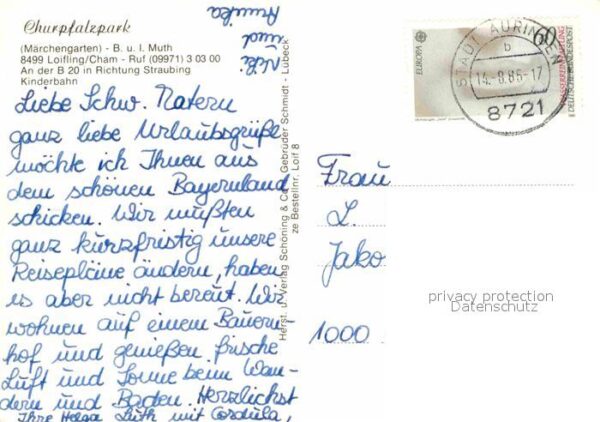 Churpfalzpark
(Märchengarten) - B. u. I. Muth
8499 Loifling/Cham - Ruf (09971) 3 03 00
An der B 20 in Richtung Straubing
Kinderbahn
Liebe Schw. Natern
ganz liebe Urlaubsgrüße
möchte ich Ihnen aus
dem schönen Bayernland
schicken. Wir mußten
ganz kurzfristig unsere
Reisepläne ändern, haben
es aber nicht bereut. Wir
wohnen auf einem Bauern-
hof und genießen frische
Luft und Sonne beim Wan-
dern und Baden. Herzlichst
Ihre Helga Luth mit Cordula,
Niki
und
Annika
Herst. u. Verlag Schöning & Co Gebrüder Schmidt - Lübeck
ze Bestellnr. Loif 8
EUROPA
60
DEUTSCHE BUNDESPOST
STADT
b
14.-8.86-17
8721
Frau
L.
Jako
1000
privacy protection
Datenschutz